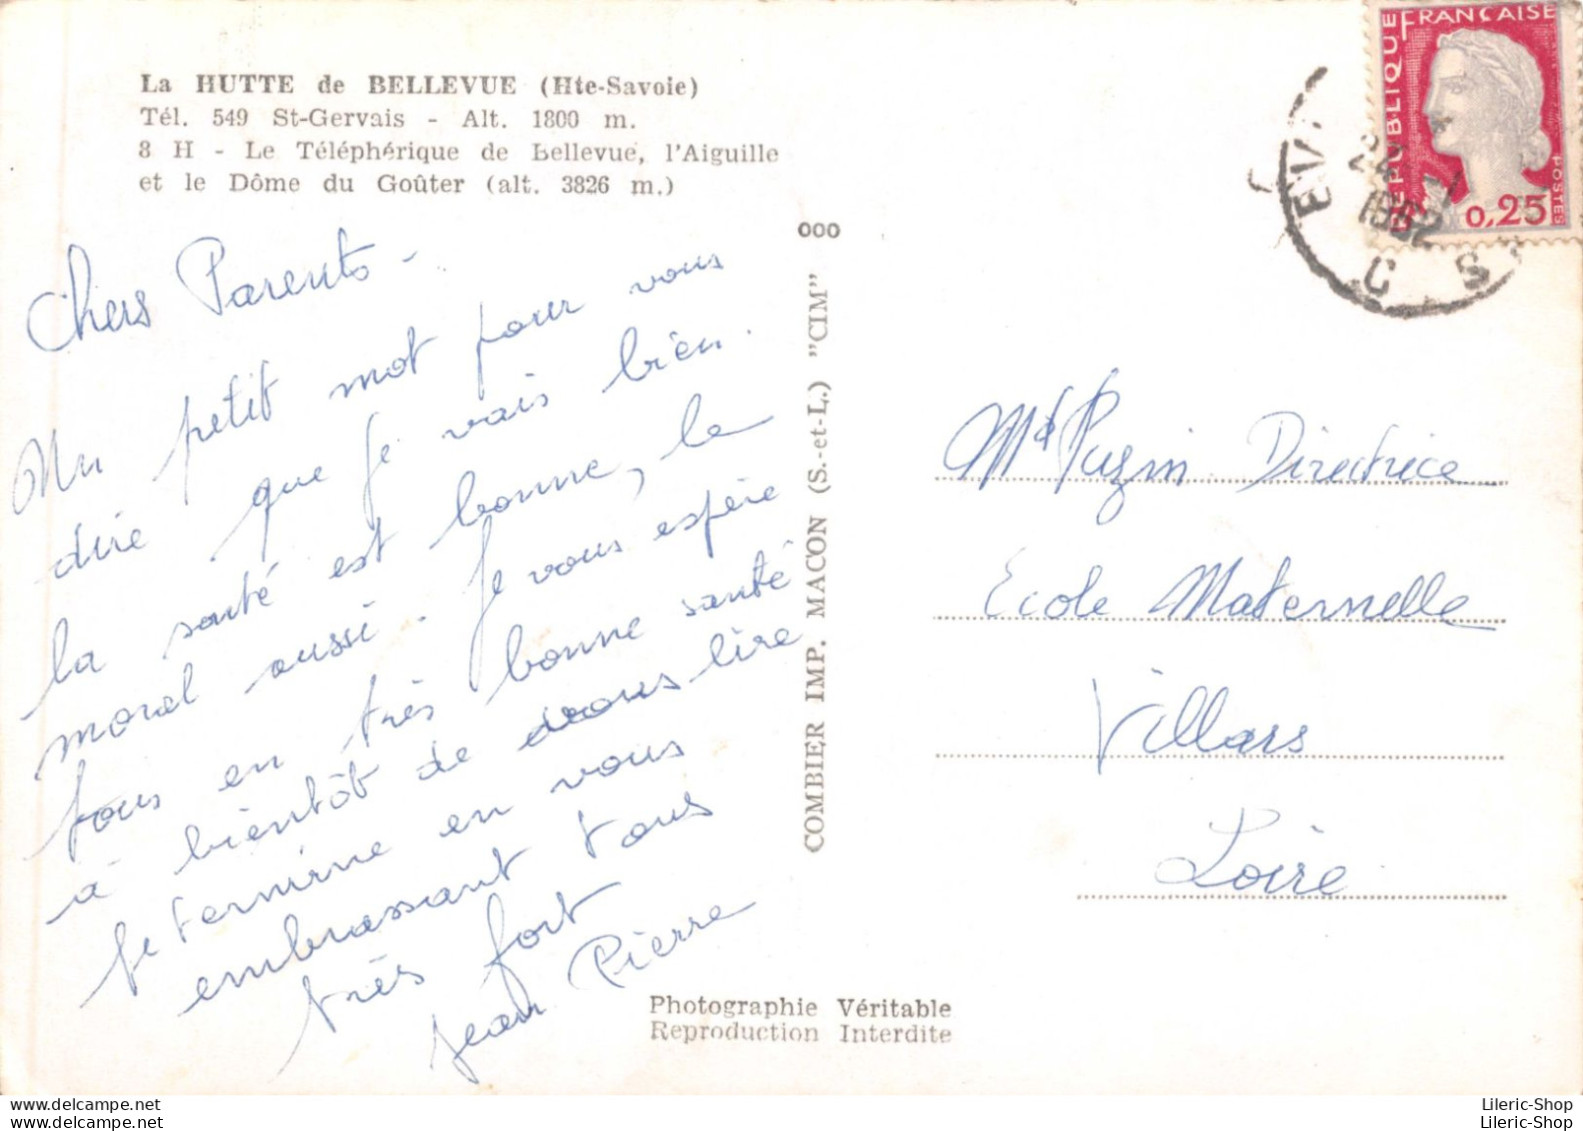 La HUTTE de BELLEVUE (Hte-Savoie)
Tél. 549 St-Gervais - Alt. 1800 m.
8 H - Le Téléphérique de Bellevue, l'Aiguille
et le Dôme du Goûter (alt. 3826 m.)
Chers Parents -
Un petit mot pour vous
dire que je vais bien.
la santé est bonne, le
moral aussi. Je vous espère
tous en très bonne santé
à bientôt de vous lire
Je termine en vous
embrassant tous
très fort
Jean Pierre
000
COMBIER IMP. MACON (S.-et-L.) "CIM"
Photographie Véritable
Reproduction Interdite
REPUBLIQUE
FRANÇAISE
POSTES
0,25
24
1962
C S
Puzin Directrice
Ecole Maternelle
Villars
Loire
www.delcampe.net
www.delcampe.net
Lileric-Shop
Lileric-Shop